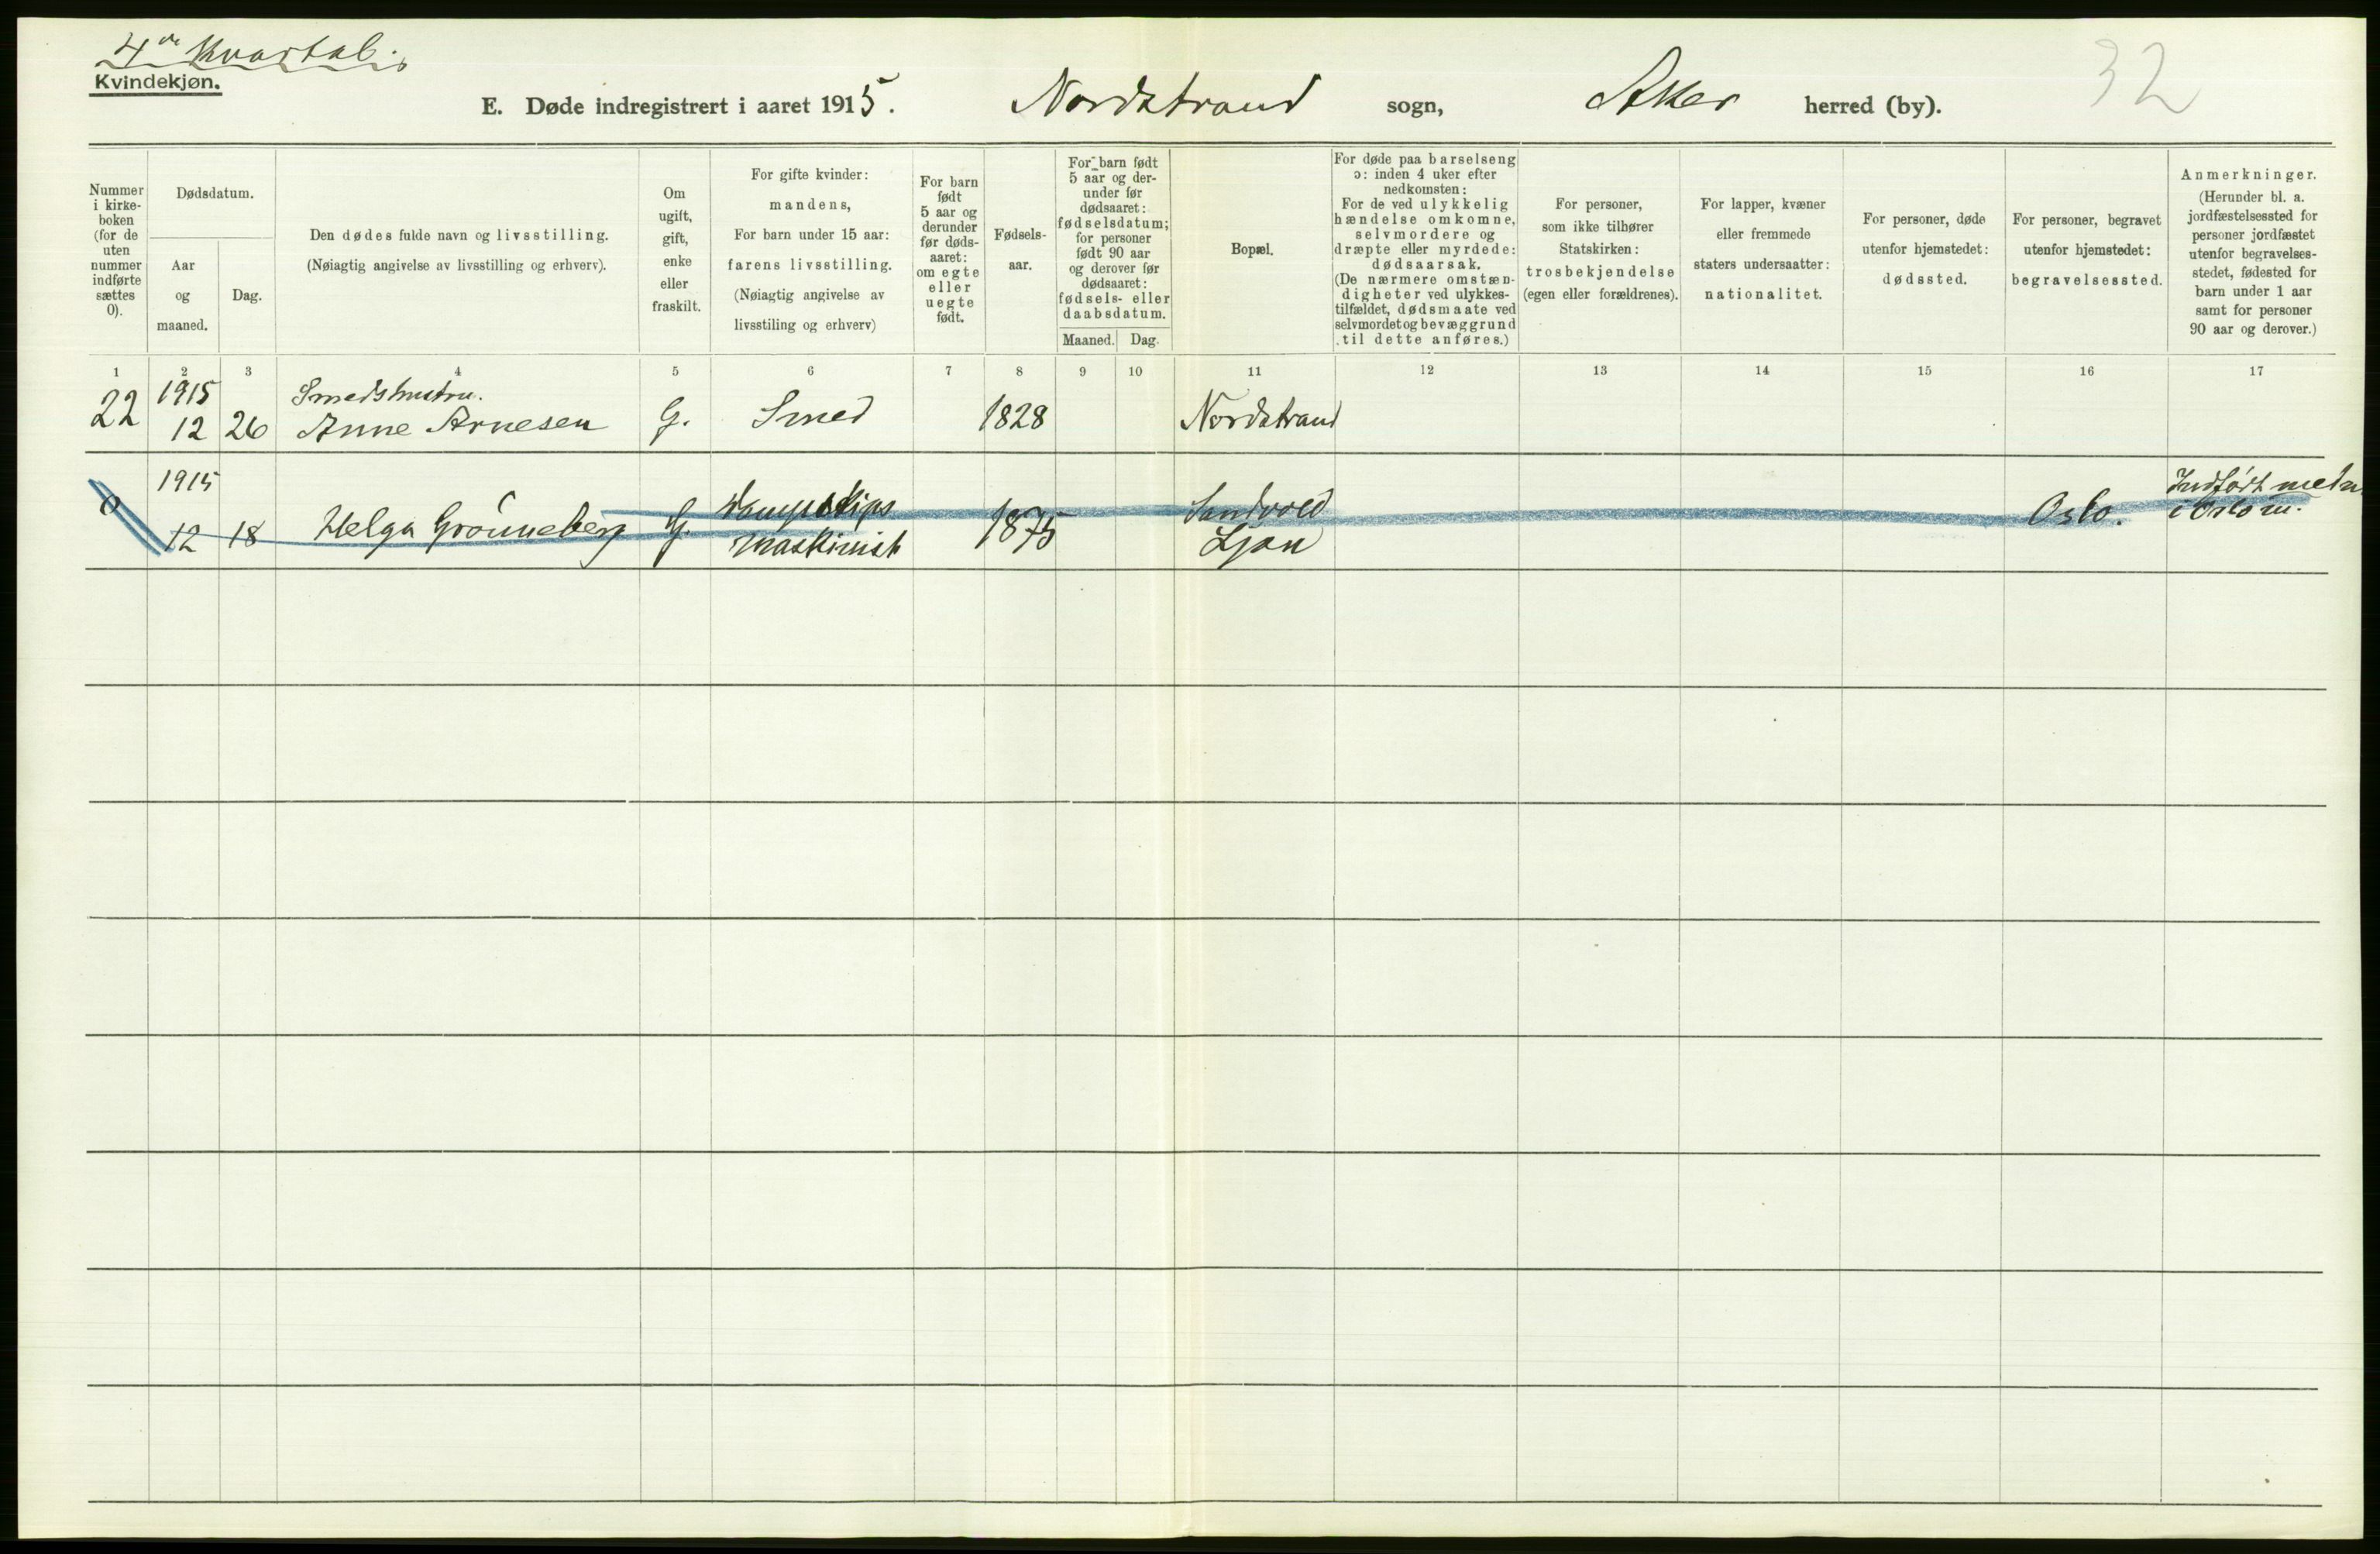 4de Kvartal.
Kvindekjøn.
E. Døde indregistrert i aaret 1915. Nordstrand sogn, Aker herred (by).
32
Nummer
i kirke-
boken
(for de
uten
nummer
indførte
sættes
0).
Dødsdatum.
Aar
og
maaned.
Dag.
Den dødes fulde navn og livsstilling.
(Nøiagtig angivelse av livsstilling og erhverv).
Om
ugift,
gift,
enke
eller
fraskilt.
For gifte kvinder:
mandens,
For barn under 15 aar:
farens livsstilling.
(Nøiagtig angivelse av
livsstiling og erhverv)
For barn
født
5 aar og
derunder
før døds-
aaret:
om egte
eller
uegte
født.
Fødsels-
aar.
For barn født
5 aar og der-
under før
dødsaaret:
fødselsdatum;
for personer
født 90 aar
og derover før
dødsaaret:
fødsels- eller
daabsdatum.
Maaned. Dag.
Bopæl.
For døde paa barselseng
ɔ: inden 4 uker efter
nedkomsten:
For de ved ulykkelig
hændelse omkomne,
selvmordere og
dræpte eller myrdede:
dødsaarsak.
(De nærmere omstæn-
digheter ved ulykkes-
tilfældet, dødsmaate ved
selvmordet og bevæggrund
til dette anføres.)
For personer,
som ikke tilhører
Statskirken:
trosbekjendelse
(egen eller forældrenes).
For lapper, kvæner
eller fremmede
staters undersaatter:
nationalitet.
For personer, døde
utenfor hjemstedet:
dødssted.
For personer, begravet
utenfor hjemstedet:
begravelsessted.
Anmerkninger.
(Herunder bl. a.
jordfæstelsessted for
personer jordfæstet
utenfor begravelses-
stedet, fødested for
barn under 1 aar
samt for personer
90 aar og derover.)
1 2 3 4 5 6 7 8 9 10 11 12 13 14 15 16 17
1915 Smedshustru.
22 12 26 Anne Arnesen G. Smed 1828 Nordstrand
1915 Dampskips Sandvold Indført
0 12 18 Helga Grönneberg G. maskinist 1875 Ljan Oslo. i Oslo m.